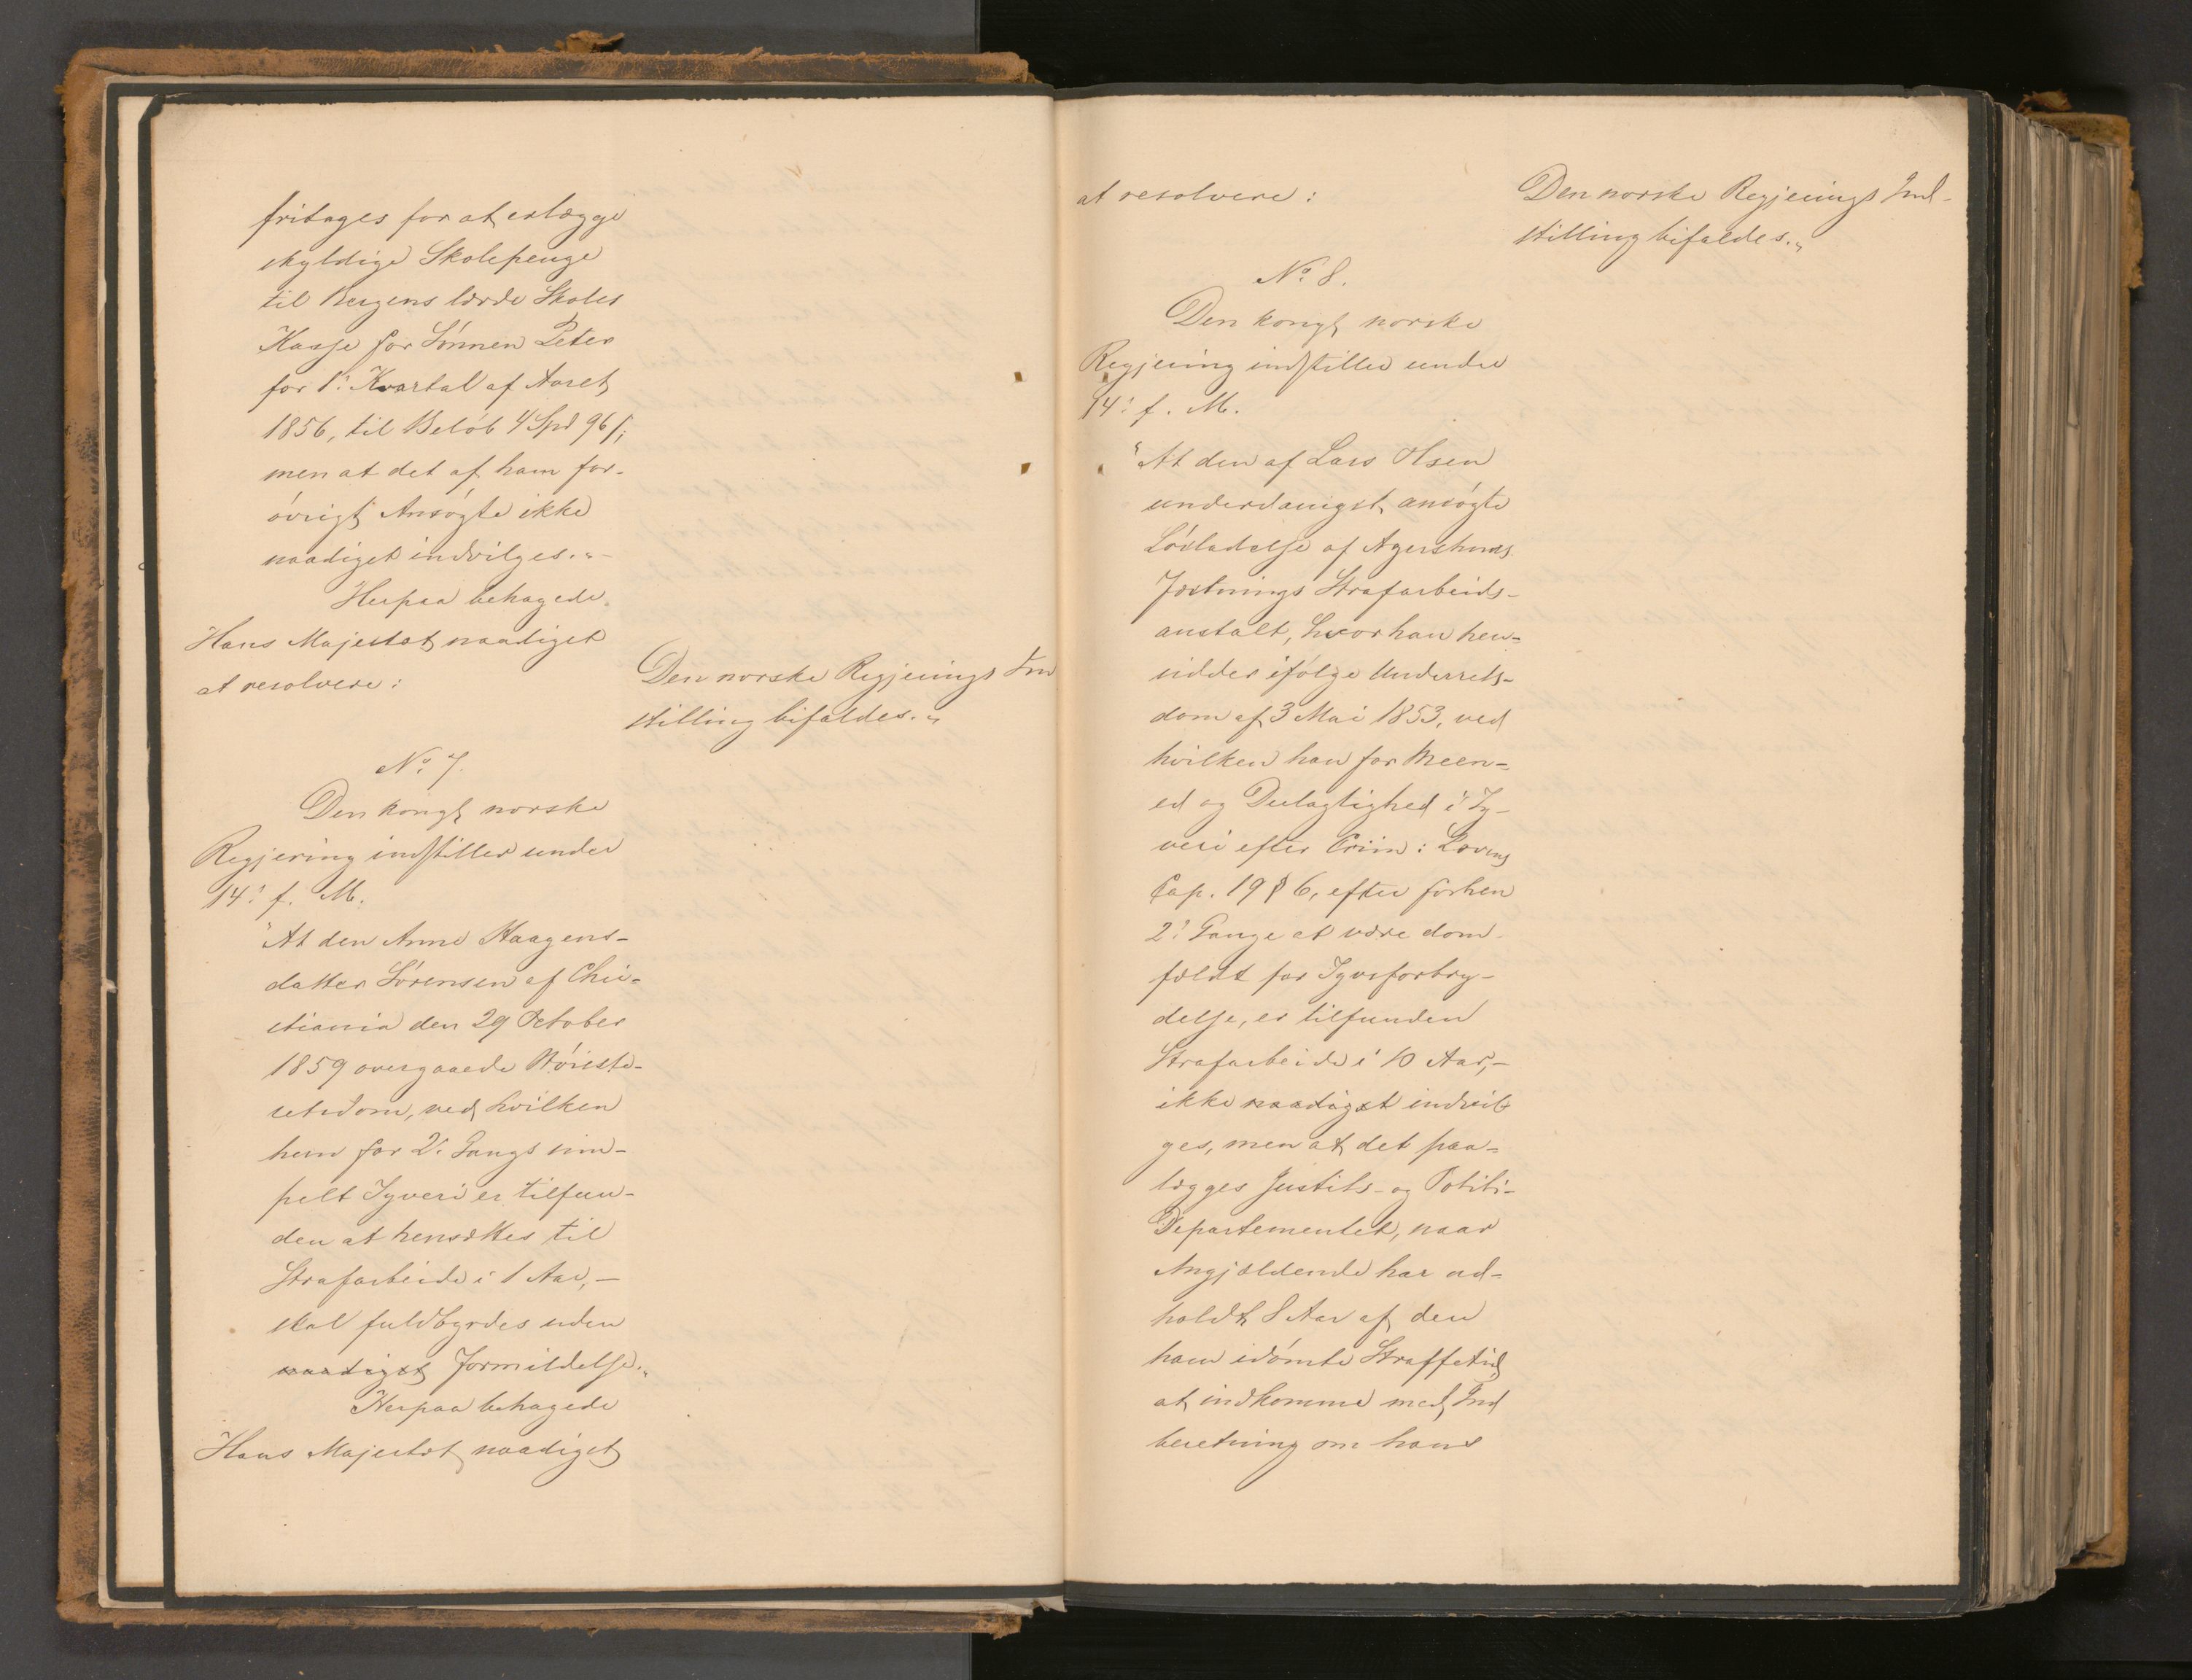 fritages for at erlægge
skyldige Skolepenge
til Bergens lærde Skoles
Kasse for Sønnen Peter
for 1ste Kvartal af Aaret
1856, til Beløb 4 Spd 96 ß;
men at det af ham for-
øvrigt Ansøgte ikke
naadigst indvilges."
Herpaa behagede
Hans Majestæt naadigst
at resolvere:
Den norske Regjerings Ind
stilling bifaldes."
No 7.
Den kongl norske
Regjering indstiller under
14: f. M.
"At den Anne Haagens-
datter Sørensen af Chri-
stiania den 29 October
1859 overgaaede Høieste-
retsdom, ved hvilken
hun for 2: Gangs sim-
pelt Tyveri er tilfun-
den at hensættes til
Strafarbeide i 1 Aar, -
skal fuldbyrdes uden
naadigst Formildelse."
Herpaa behagede
Hans Majestæt naadigst
at resolvere:
Den norske Regjerings Ind-
stilling bifaldes."
No 8.
Den kongl norske
Regjering indstiller under
14: f. M.
"At den af Lars Olsen
underdanigst ansøgte
Løsladelse af Agershuus
Fæstnings Strafarbeids-
anstalt, hvor han hen-
sidder ifølge Underrets-
dom af 3 Mai 1853, ved
hvilken han for Meen-
ed og Deelagtighed i Ty-
veri efter Crim: Lovens
Cap. 19 § 6, efter forhen
2: Gange at være dom-
fældt for Tyvsforbry-
delse, er tilfunden
Strafarbeide i 10 Aar, -
ikke naadigst indvil-
ges, men at det paa-
lægges Justits- og Politi-
Departementet, naar
Angjældende har ud-
holdt 8 Aar af den
ham idømte Straffetid,
at indkomme med Ind
beretning om hans